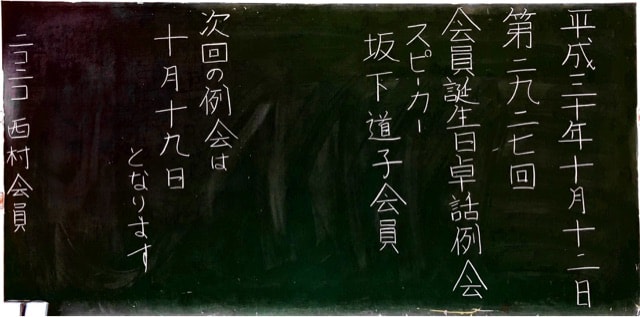 平成三十年十月十二日
第二九二七回
会員誕生日卓話例会
スピーカー
坂下道子会員
次回の例会は
十月十九日
となります
ニコニコ 西村会員